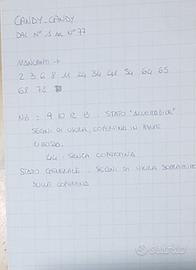 CANDY_CANDY
DAL N° 1 AL N° 77
MANCANTI →
2 3 6 8 11 24 34 48 54 64 65
68 72
NB : 9 10 12 13 STATO "ACCETTABILE"
SEGNI DI USURA, COPERTINA IN PARTE
44 : SENZA COPERTINA
STATO GENERALE : SEGNI DI USURA SOPRATTUTTO
SULLE COPERTINA
Subito.it